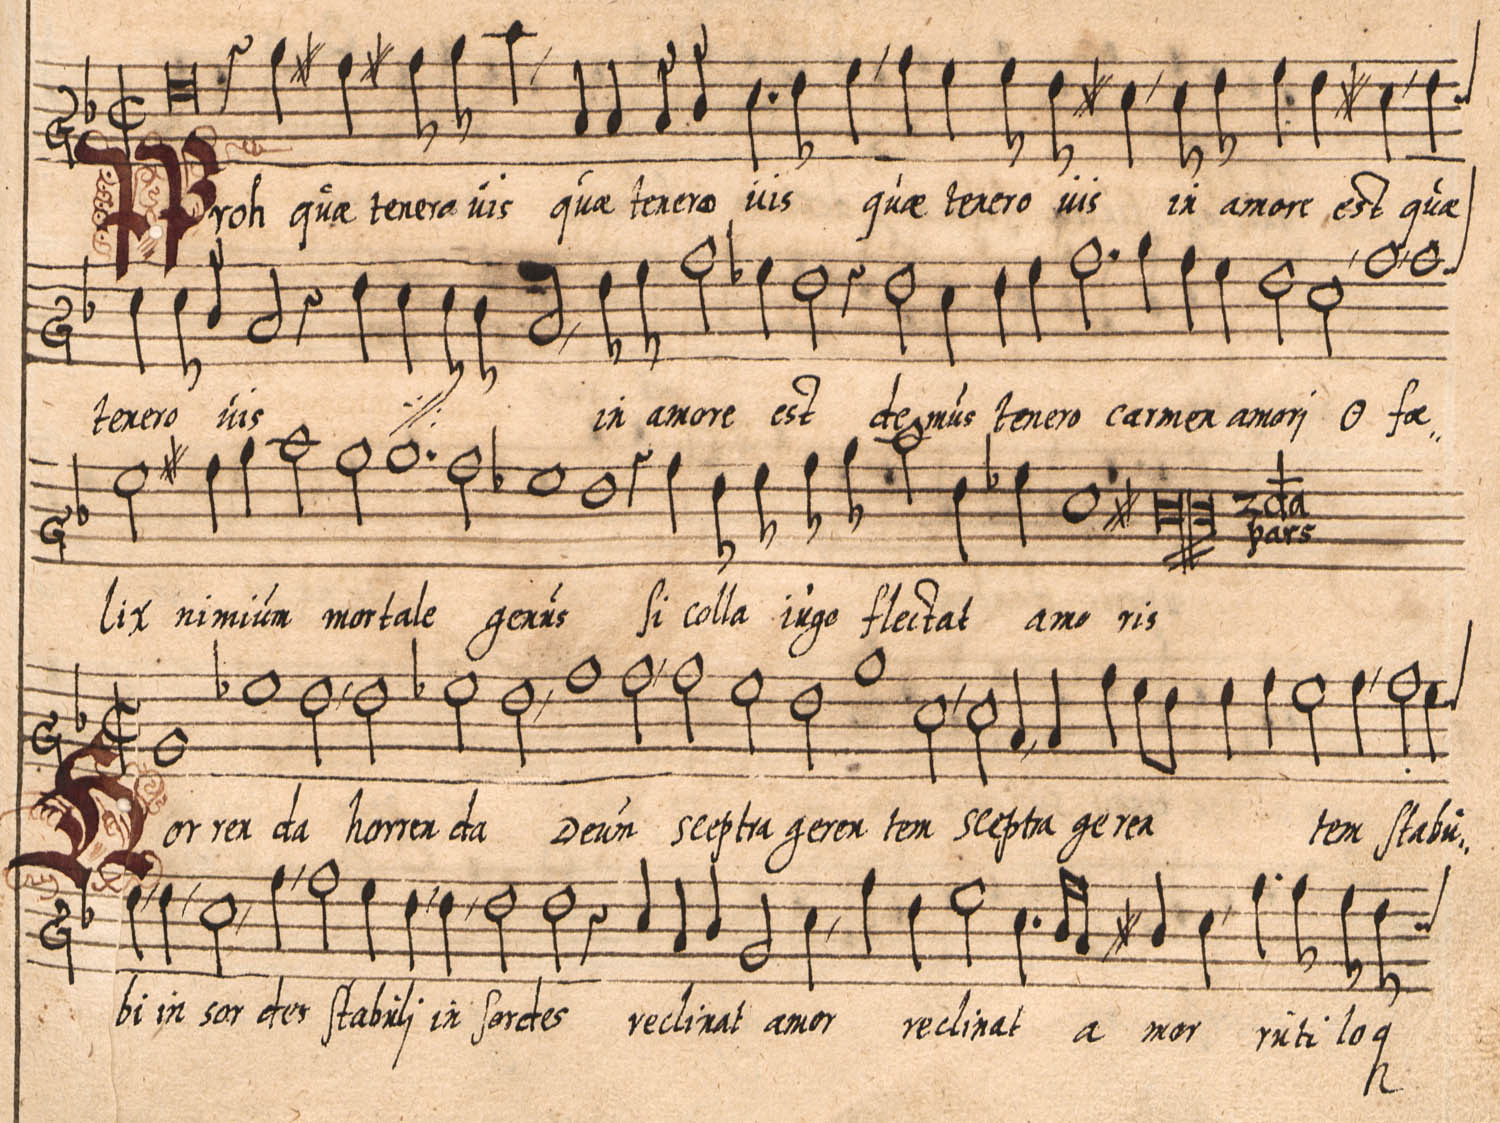 Proh quæ tenero uis quæ tenero uis quæ tenero uis in amore est quæ
tenero uis ·//· in amore est demus tenero carmen amori O fœ„
2da
pars
lix nimium mortale genus si colla iugo flectat amo ris
Hor ren da horren da Deum sceptra geren tem sceptra ge ren tem stabu„
bi in sor des stabuli in sordes reclinat amor reclinat a mor ruti lo q